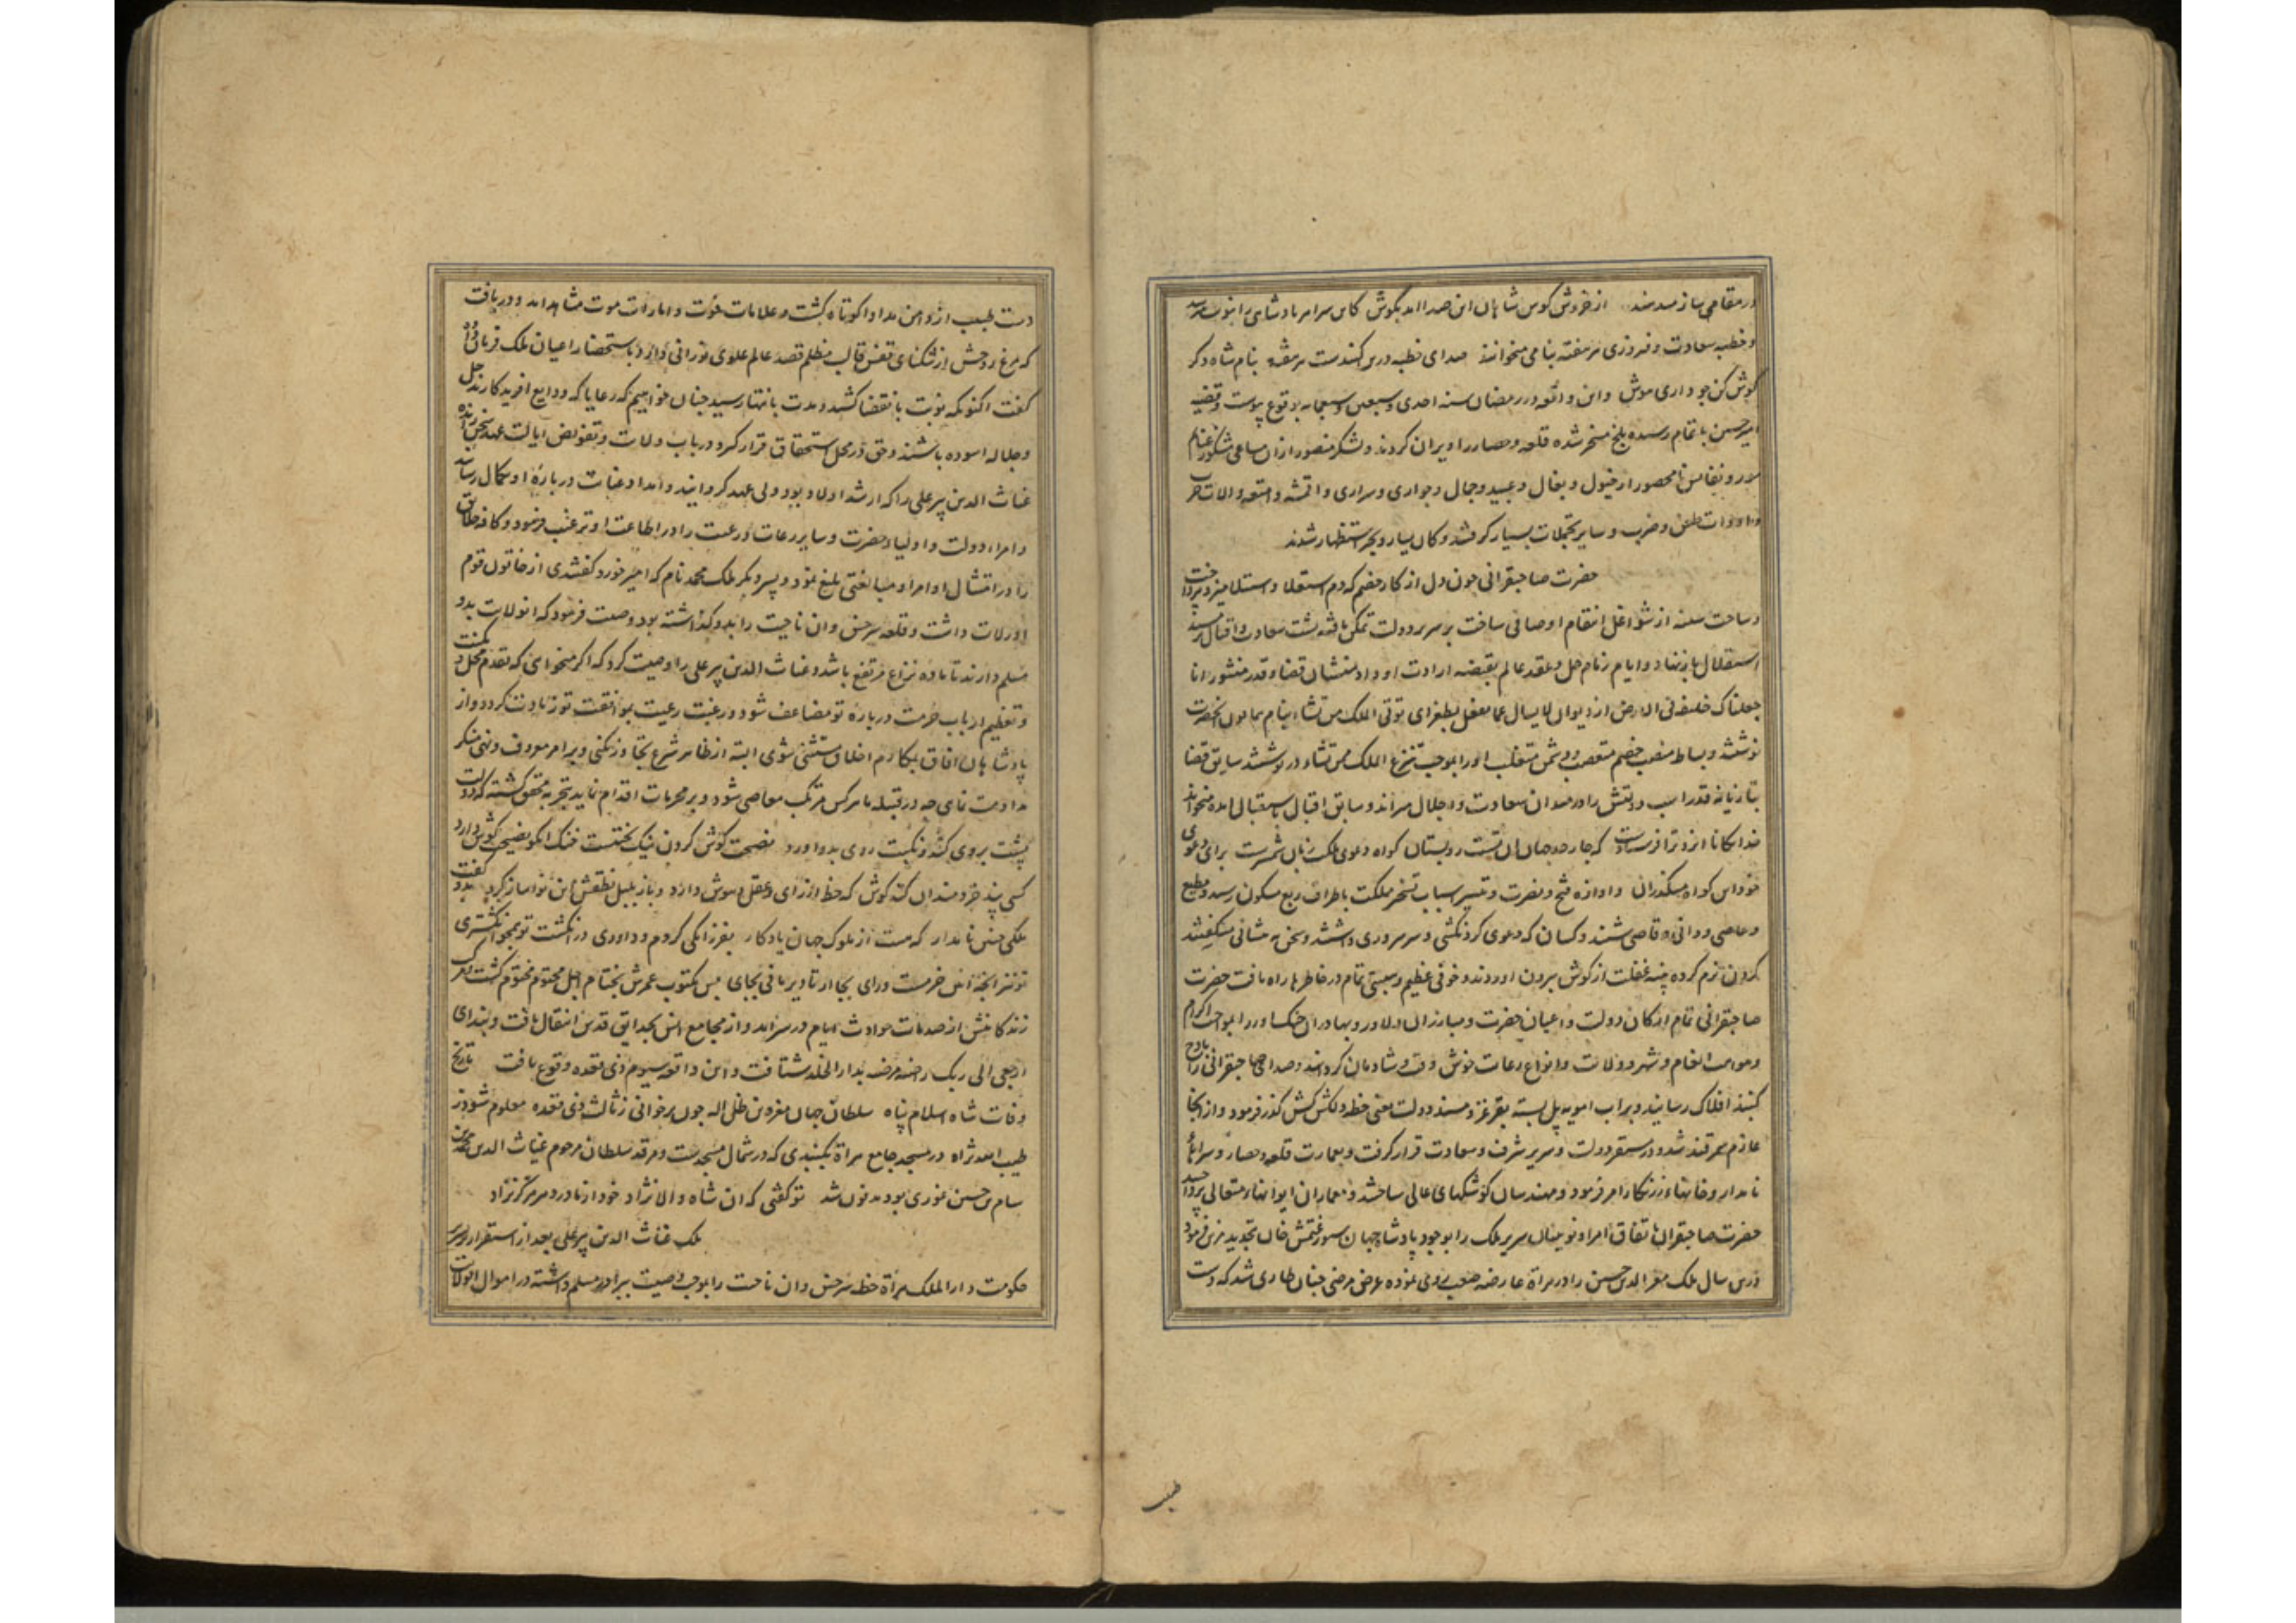 در مقامی ساز میدهند از خروش کوس شاهان این صدا آمد بگوش کاین سرا مر پادشاهی را بنوبت میرسد
و خطبه سعادت و فیروزی هر هفته بنامی میخوانند صدای خطبه درین کنبدست هر هفته بنام شاه دکر
کوش کن جو داری هوش و این واقعه در رمضان سنه احدی و سبعین و سبعمایه بوقوع پیوست و قضیه
امیر حسین باتمام رسیده بلخ مسخر شده قلعه و حصار را ویران کردند و لشکر منصور از ان مساعی مشکور غنایم
و نفایس نامحصور از خیول و بغال و عبید و جمال و جواری و سراری و اقمشه و امتعه و الات حرب
و ادوات طعن و ضرب و سایر تجملات بسیار کرفتند و کان یسار و بحر استظهار شدند
حضرت صاحبقرانی چون دل از کار خصم که دم استقلال و استیلا میزد بپرداخت
و ساحت سینه از شواغل انتقام او صافی ساخت بر سریر دولت تمکن یافته پشت سعادت و اقبال بر مسند
استقلال باز نهاد و ایام زمام حل و عقد عالم بقبضه ارادت او داد منشیان قضا و قدر منشور انا
جعلناک خلیفة فی الارض از دیوان لا یسال عما یفعل بطغرای توتی الملک من تشاء بنام همایون انحضرت
نوشتند و بساط منصب خصم متعصب و دشمن متغلب او را بموجب تنزع الملک ممن تشاء در نوشتند سایق قضا
بتازیانه قدر اسب دولتش را در میدان سعادت و اجلال میراند و سابق اقبال باستقبال امده میخواند
خدایکانا ایزد ترا فرستادست که چار حد جهان ان تست روبستان کواه دعوی ملکت زبان شمشیرست برای دعوی
خود این کواه میکذران و اوازه فتح و نصرت و تیسیر اسباب تسخیر مملکت باطراف ربع مسکون رسید و مطیع
و عاصی و دانی و قاصی شنیدند و کسان که دعوی کردنکشی و سرسروری داشتند و سخن به مشانی میکفتند
کردن نرم کرده پنبه غفلت از کوش بیرون اوردند و خوفی عظیم و هیبتی تمام در خاطرها راه یافت حضرت
صاحبقرانی تمام ارکان دولت و اعیان حضرت و مبارزان دلاور و بهادران جنک اور را بمواجب اکرام
و مواهب انعام و شهر و ولایت و انواع رعایت خوش وقت و شادمان کردانید و صدای صاحبقرانی را باوج
کنبد افلاک رسانید و بر اب امویه پل بسته بمقر عز و مسند دولت یعنی خطه دلکش کش کذر فرمود و از انجا
عازم سمرقند شد و در مستقر دولت و سریر شرف و سعادت قرار کرفت و بعمارت قلعه و حصار و سراهای
نامدار و خانهاء زرنکار امر فرمود و مهندسان کوشکهای عالی ساختند و معماران ایوانهاء متعالی پرداختند
حضرت صاحبقران باتفاق امرا و نوینان سریر ملک را بوجود پادشاه جهان سیورغتمش خان تجدید مزین فرمود
درین سال ملک معز الدین حسین را در هراة عارضه صعب روی نموده بمرض مرضی چنان طاری شد که دست
طبیب
دست طبیب از دامن مداوا کوتاه کشت و علامات فوت و امارات موت مشاهد امد و دریافت
که مرغ روحش از تنکنای قفس قالب مظلم قصد عالم علوی نورانی دارد باستحضار اعیان ملک فرمان داد
کفت اکنون که نوبت بانقضا کشید و مدت بانتها رسید چنان خواهیم که رعایا که ودایع افریدکارند جل
و جلاله اسوده باشند و حق در محل استحقاق قرار کیرد در باب ولایت و تفویض ایالت عهد سخن رانده
غیاث الدین پیر علی را که ارشد اولاد بود ولی عهد کردانید و امداد عنایت درباره او بکمال رسانید
و امراء دولت و اولیاء حضرت و سایر رعات و رعیت را در اطاعت او ترغیب فرمود و کافه خلایق
را در امتثال اوامر او مبالغتی بلیغ نمود و پسر دیکر ملک محمد نام که امیر خورد کفتندی از خاتون قوم
اورلات داشت و قلعه سرخس و ان ناحیت را بدو کذاشته بود وصیت فرمود که ان ولایت بدو
مسلم دارند تا ماده نزاع مرتفع باشد و غیاث الدین پیر علی را وصیت کرد که اکر میخواهی که تقدم محل و مکنت
و تعظیم ارباب حرمت درباره تو مضاعف شود و رغبت رعیت بموافقت تو زیادت کردد و از
پادشاهان افاق بمکارم اخلاق مستثنی شوی البته از ظاهر شرع تجاوز نکنی و بر امر معروف و نهی منکر
مداومت نمای چه در قبیله ما هر کس مرتکب معاصی شود و بر محرمات اقدام نماید تجربه محقق کشته که دولت
پشت بر وی کند و نکبت روی بدو اورد نصیحت کوش کردن نیک بختیست خنک انکو نصیحت کوش دارد
کسی پند خردمندان کند کوش که حظ از رای و عقل و هوش دارد و باز بلبل نطقش این نوا ساز کرد بدو کفت
ملکی چنین نامدار که هست از ملوک جهان یادکار بفرزانکی کردم و داوری در انکشت تو همچو انکشتری
تو نیز انچه این خرمست ورای بجا ار تا دیر مانی بجای پس مکتوب عمرش بختام اجل محتوم مختوم کشت مرکب
زندکانیش از صدمات حوادث ایام در سر امد و از مجامع انس بحدایق قدس انتقال یافت و بندای
ارجعی الی ربک راضیة مرضیه بدار الخلد شتافت و این واقعه سیوم ذی قعده وقوع یافت تاریخ
وفات شاه اسلام پناه سلطان جهان معز دین ظل اله چون برخوانی ز ثالث ذی قعده معلوم شود ز
طیب الله ثراه در مسجد جامع هراة بکنبدی که در شمال مسجدست و مرقد سلطان مرحوم غیاث الدین محمد بن
سام بن حسین غوری بود مدفون شد تو کفتی که ان شاه والا نژاد خود از مادر دهر هرکز نزاد
ملک غیاث الدین پیر علی بعد از استقرار بر سریر
حکومت دار الملک هراة خطه سرخس و ان ناحیت را بموجب وصیت ببرادر مسلم داشته در اموال ان ولایت